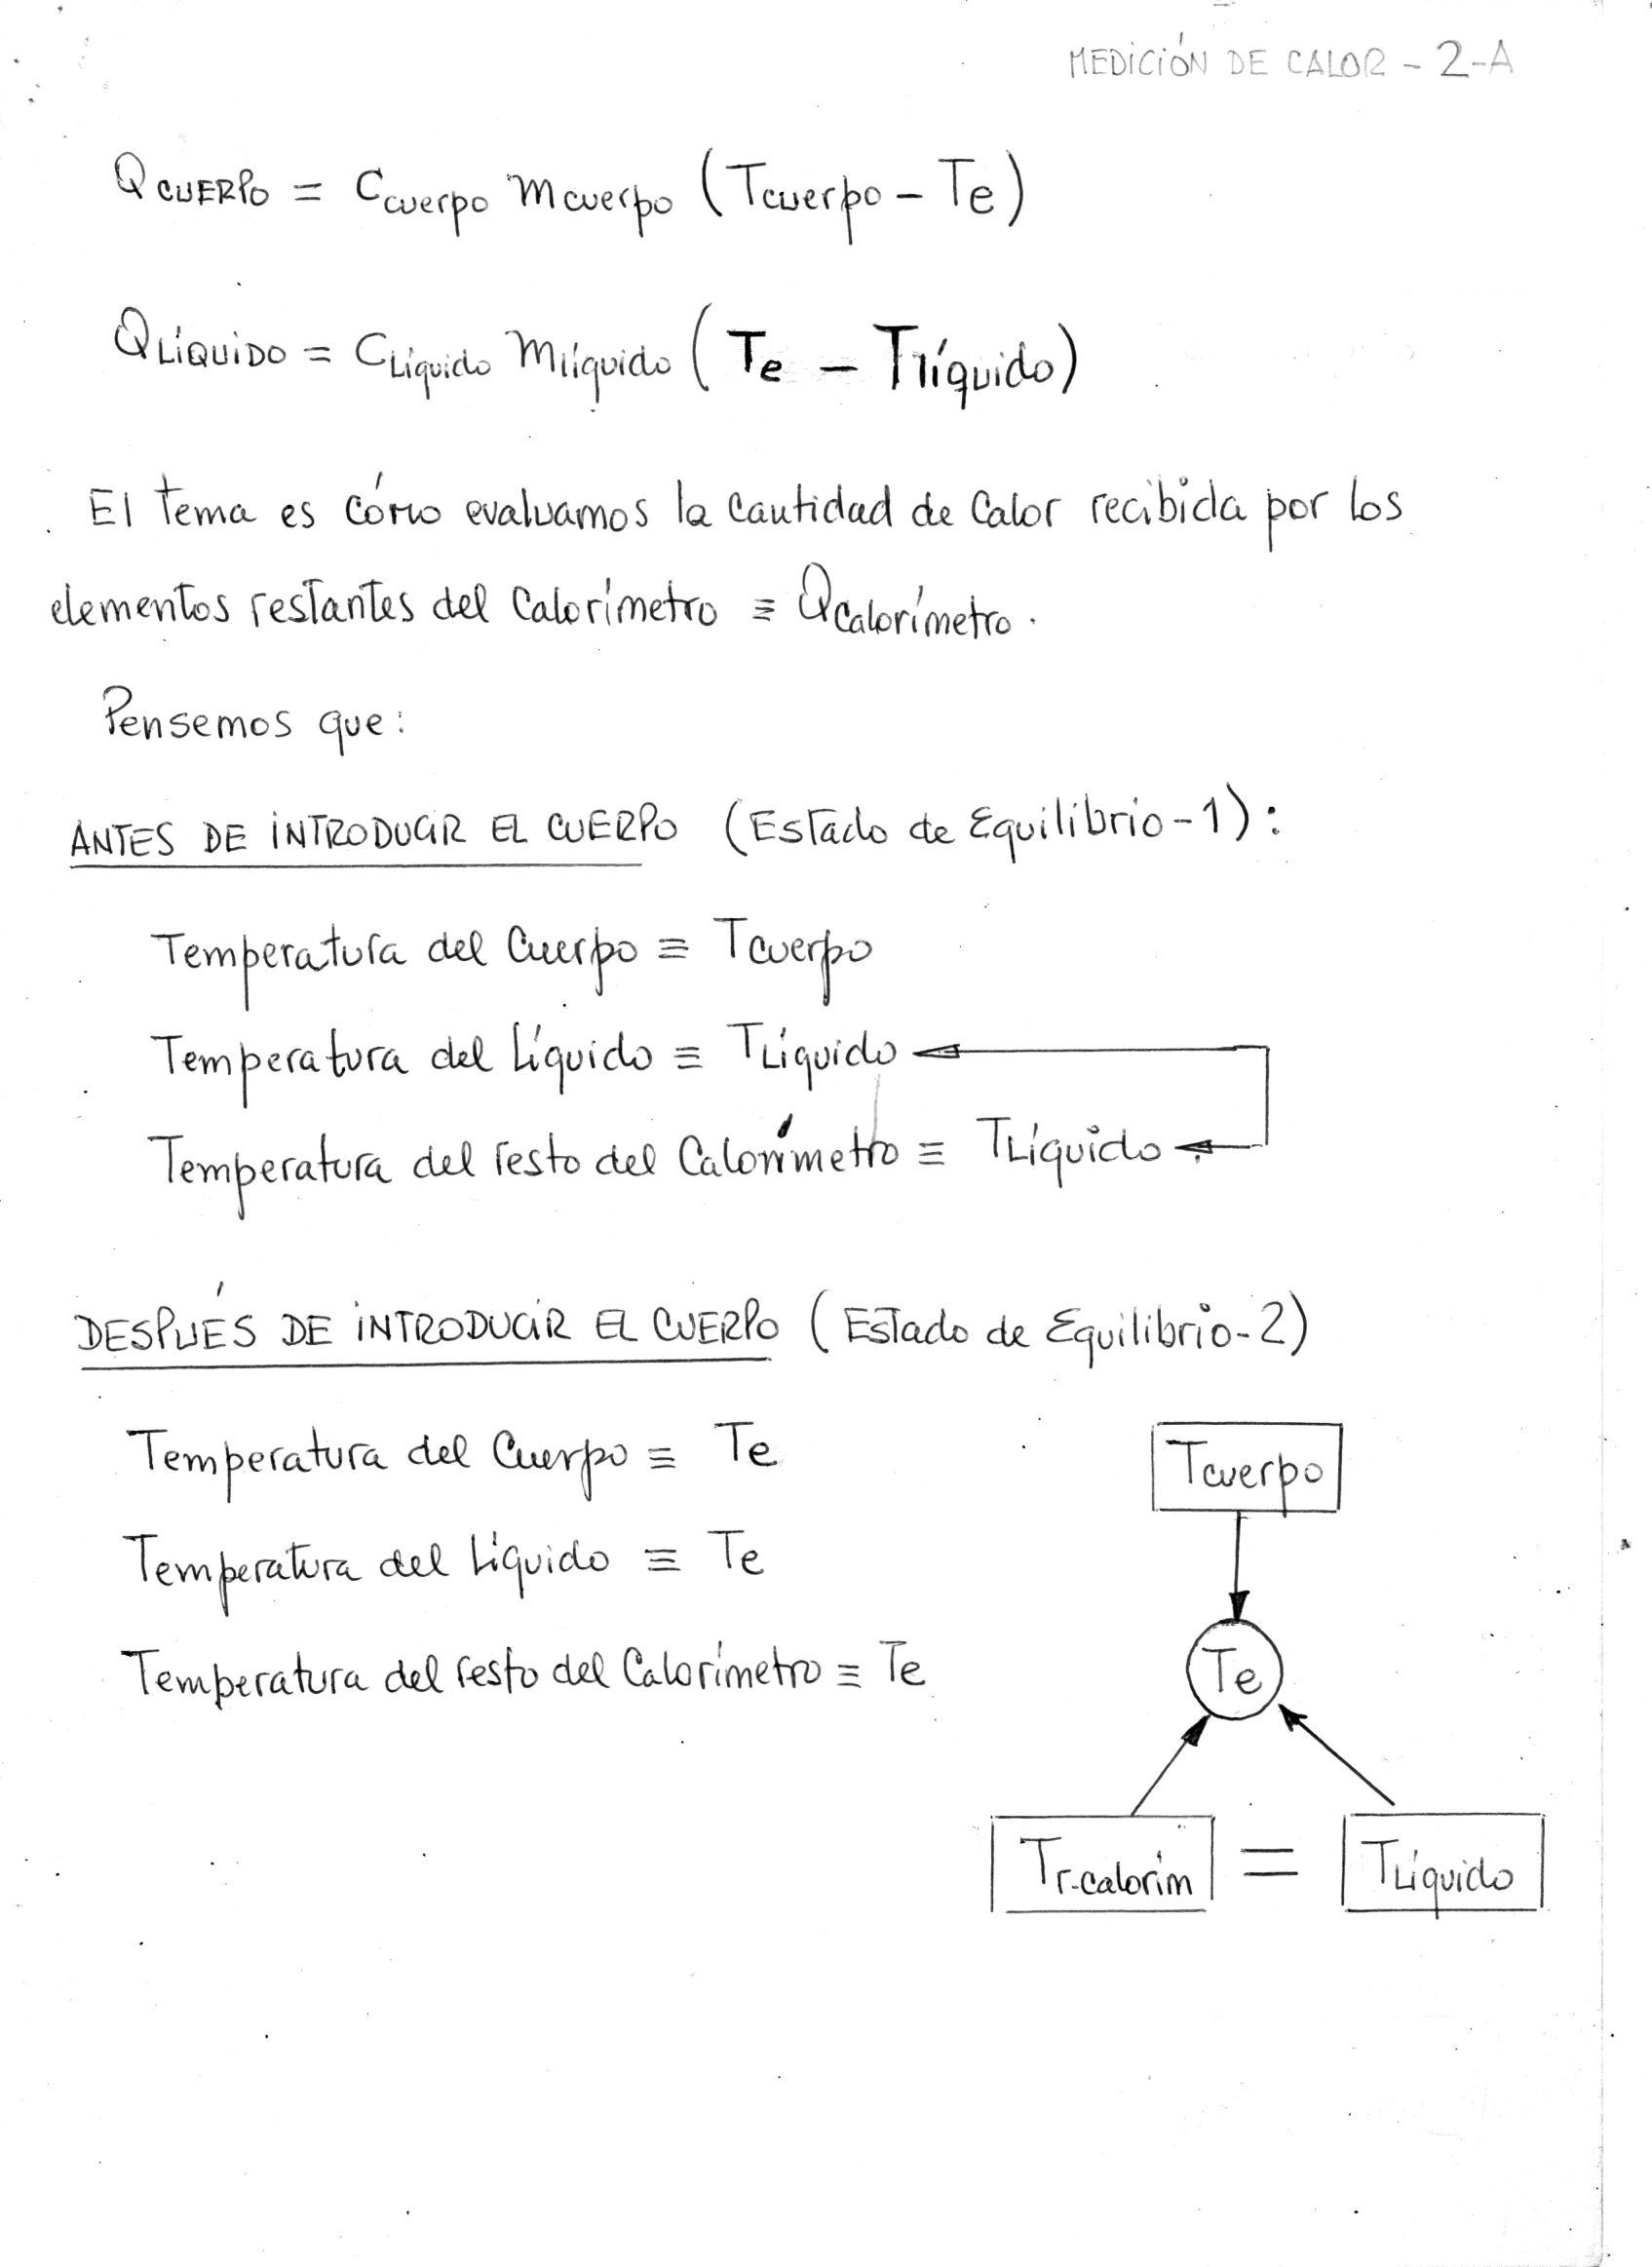 MEDICIÓN DE CALOR - 2-A
QCUERPO = Ccuerpo mcuerpo (Tcuerpo - Te)
QLÍQUIDO = CLíquido mlíquido (Te - Tlíquido)
El tema es cómo evaluamos la cantidad de Calor recibida por los
elementos restantes del Calorímetro ≡ QCalorímetro.
Pensemos que:
ANTES DE INTRODUCIR EL CUERPO (Estado de Equilibrio-1):
Temperatura del Cuerpo ≡ Tcuerpo
Temperatura del Líquido ≡ TLíquido
Temperatura del resto del Calorímetro ≡ TLíquido
DESPUÉS DE INTRODUCIR EL CUERPO (Estado de Equilibrio-2)
Temperatura del Cuerpo ≡ Te
Temperatura del Líquido ≡ Te
Temperatura del resto del Calorímetro ≡ Te
Tcuerpo
Te
Tr-calorím = TLíquido